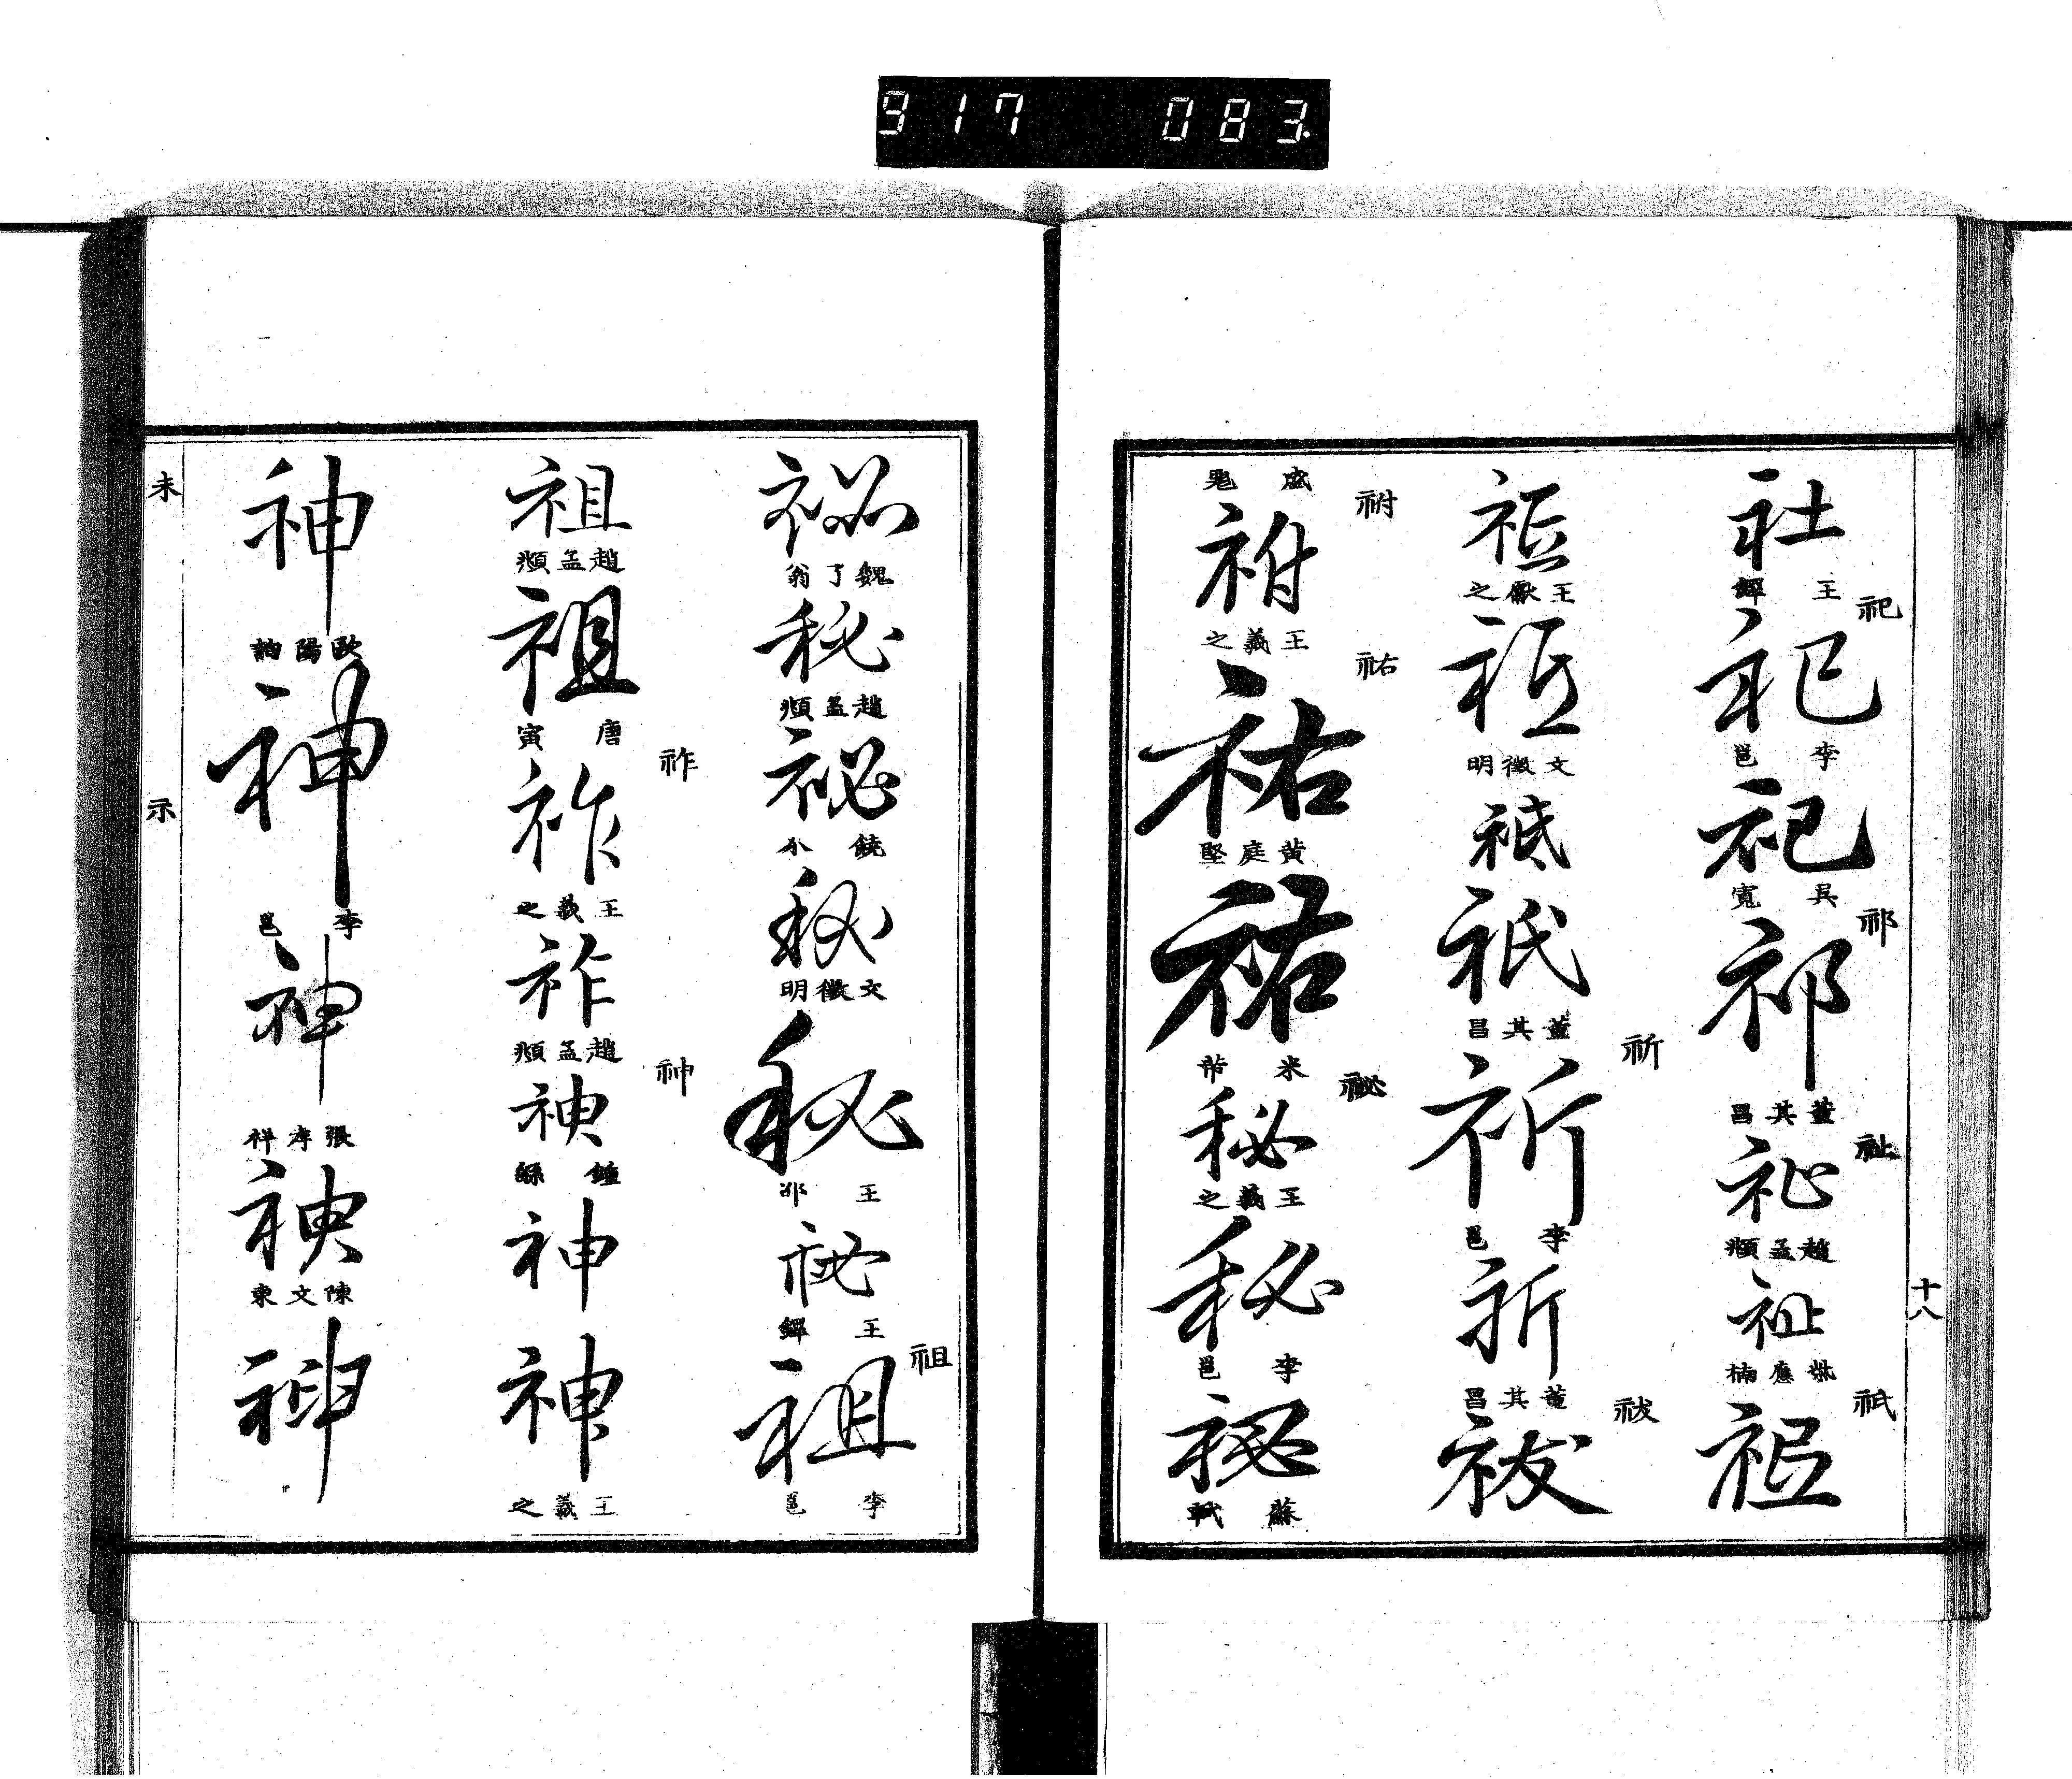 917 083
十八
社
王鐸
祀
祀
李邕
祀
吳寬
祁
祁
董其昌
祉
祉
趙孟頫
祉
姚應楠
祇
祇
祇
王獻之
祇
文徵明
祇
祇
董其昌
祈
祈
李邕
祈
董其昌
祓
祓
盛
祔
祔
王羲之
祐
祐
黃庭堅
祐
米芾
祕
秘
王羲之
秘
李邕
祕
蘇軾
祕
魏了翁
秘
趙孟頫
祕
饒介
秘
文徵明
秘
王邵
祕
王鐸
祖
祖
李邕
祖
趙孟頫
祖
唐寅
祚
祚
王羲之
祚
趙孟頫
神
神
鍾繇
神
神
王羲之
神
歐陽詢
神
李邕
神
張孝祥
神
陳文東
神
未
示